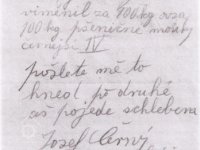 viměnil za 100 kg
100 kg pšeničné mouky
černejší IV
pošlete mě to
hnest po druhé
až pojede schlebem
Josef Černý